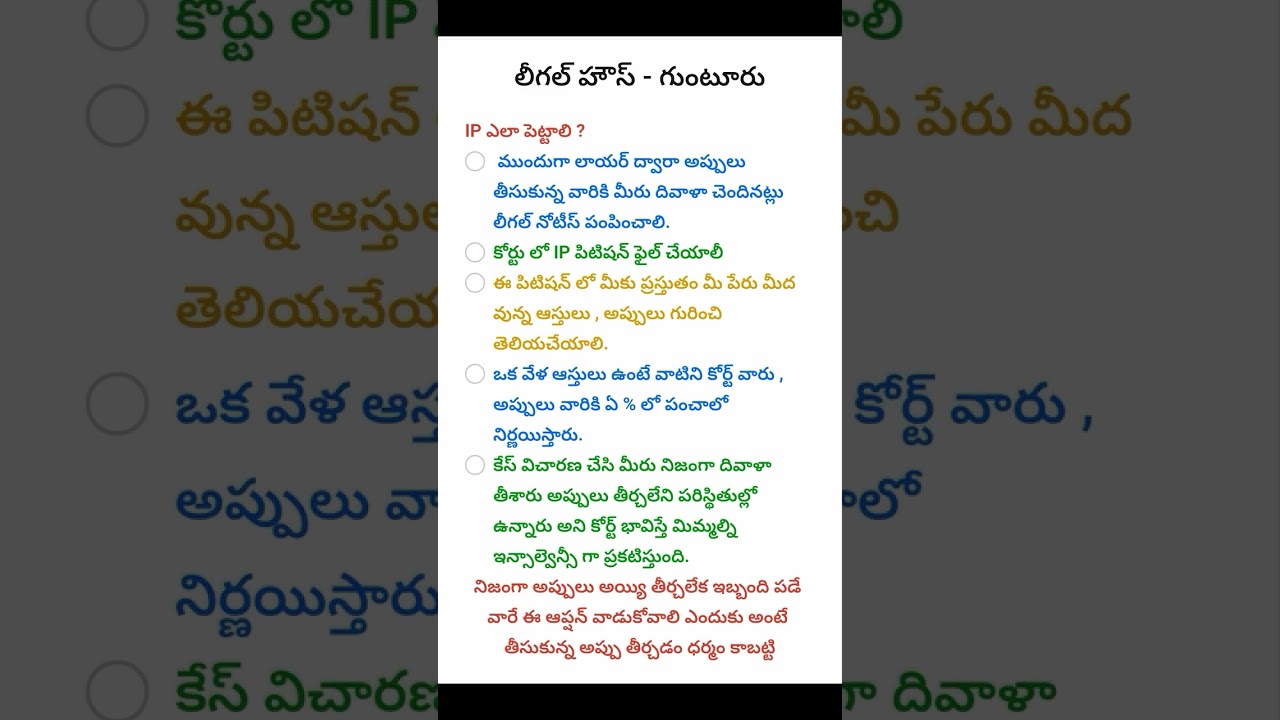 లీగల్ హౌస్ - గుంటూరు
IP ఎలా పెట్టాలి ?
ముందుగా లాయర్ ద్వారా అప్పులు
తీసుకున్న వారికి మీరు దివాళా చెందినట్లు
లీగల్ నోటీస్ పంపించాలి.
కోర్టు లో IP పిటిషన్ ఫైల్ చేయాలీ
ఈ పిటిషన్ లో మీకు ప్రస్తుతం మీ పేరు మీద
వున్న ఆస్తులు , అప్పులు గురించి
తెలియచేయాలి.
ఒక వేళ ఆస్తులు ఉంటే వాటిని కోర్ట్ వారు ,
అప్పులు వారికి ఏ % లో పంచాలో
నిర్ణయిస్తారు.
కేస్ విచారణ చేసి మీరు నిజంగా దివాళా
తీశారు అప్పులు తీర్చలేని పరిస్థితుల్లో
ఉన్నారు అని కోర్ట్ భావిస్తే మిమ్మల్ని
ఇన్సాల్వెన్సీ గా ప్రకటిస్తుంది.
నిజంగా అప్పులు అయ్యి తీర్చలేక ఇబ్బంది పడే
వారే ఈ ఆప్షన్ వాడుకోవాలి ఎందుకు అంటే
తీసుకున్న అప్పు తీర్చడం ధర్మం కాబట్టి